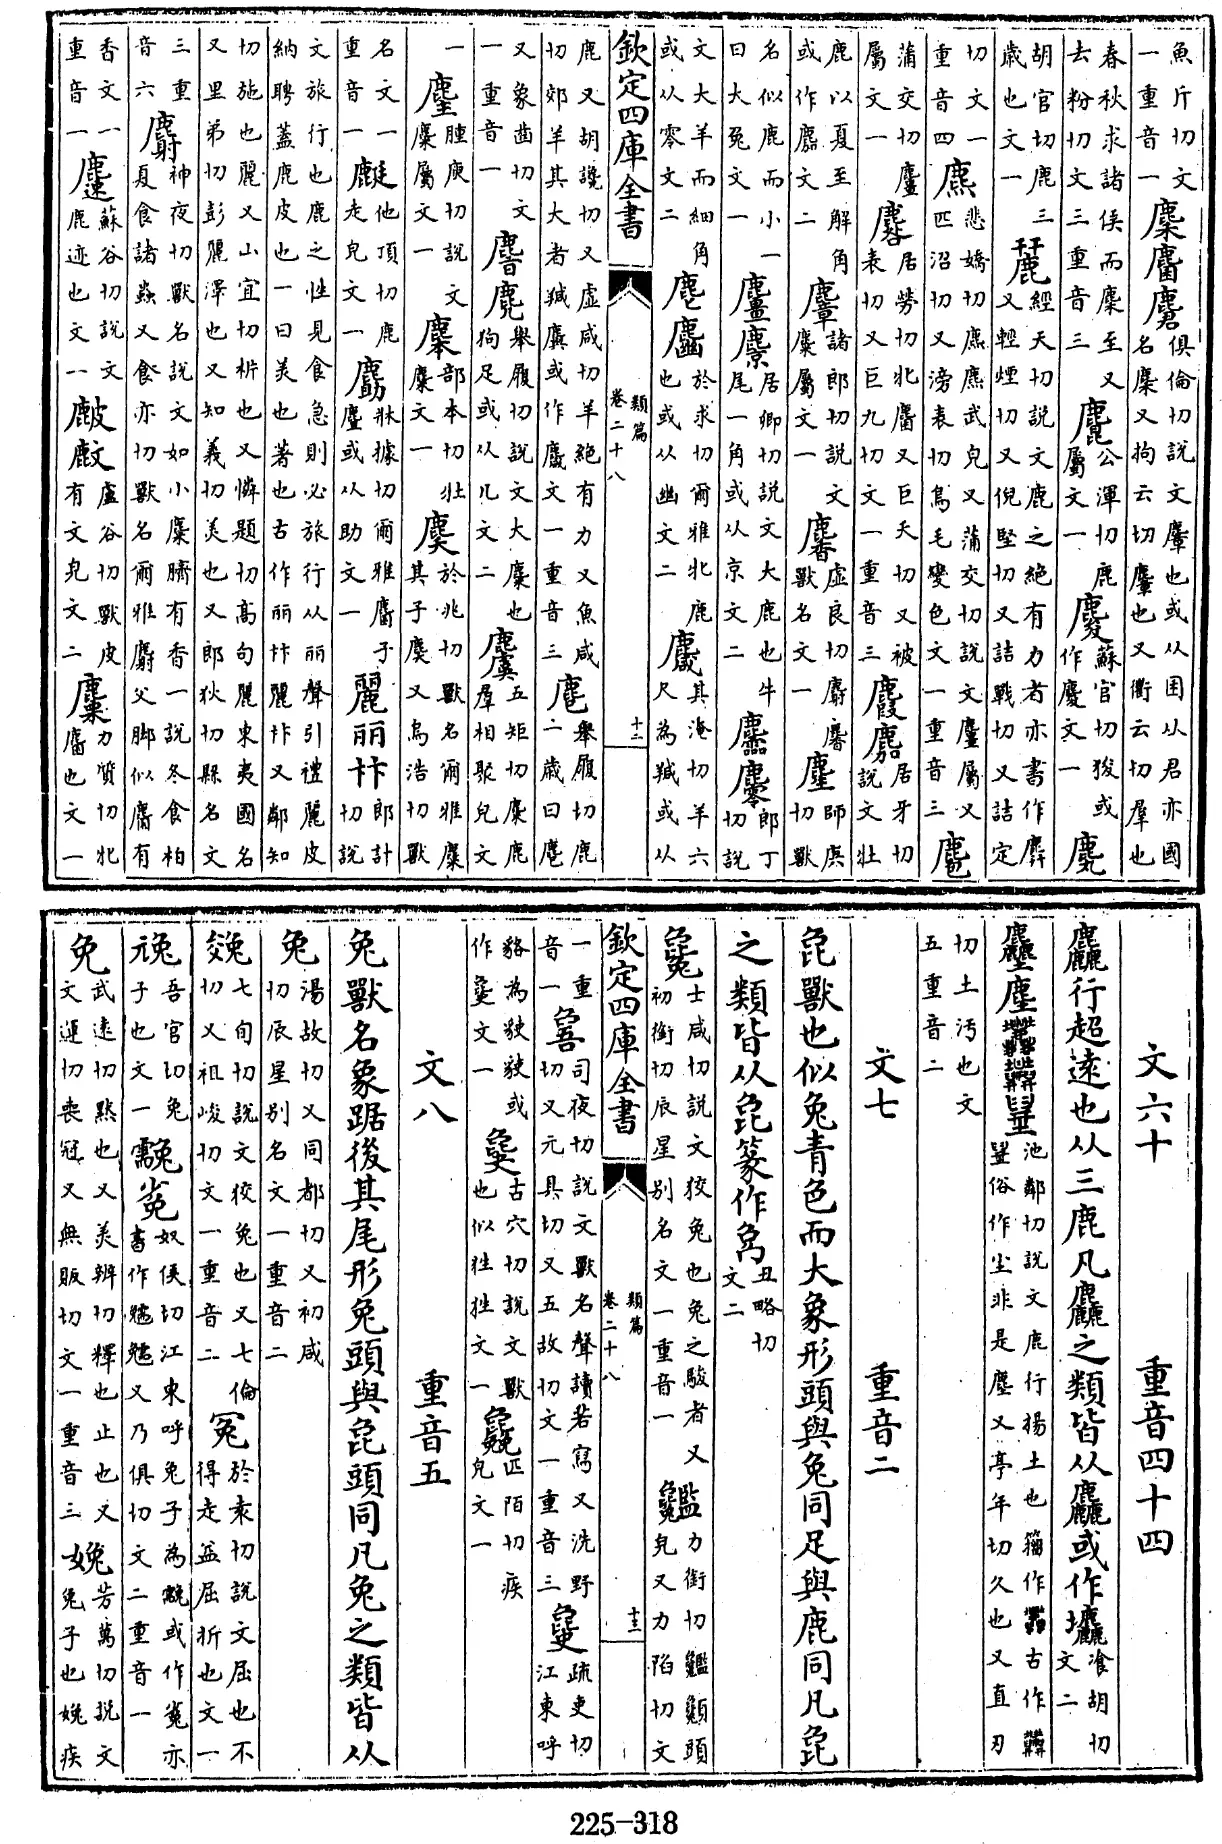 魚斤切文一重音一麇麕麏俱倫切說文麞也或从囷从君亦國名麇又拘云切麞也又衢云切羣也
春秋求諸侯而麇至又去粉切文三重音三公渾切鹿屬文一蘇官切狻或作文一
胡官切鹿三歲也文一麉經天切說文鹿之絕有力者亦書作又輕煙切又倪堅切又詰戰切又詰定
切文一重音四麃悲嬌切麃麃武皃又蒲交切說文麠屬又匹沼切又滂表切鳥毛變色文一重音三麅
蒲交切麠屬文一麔居勞切牝麕又巨夭切又被表切又巨九切文一重音三麚居牙切說文壯
鹿以夏至解角或作文二麞諸郎切說文麋屬文一麘虛良切麝麘獸名文一師庚切獸
名似鹿而小一曰大兔文一麠麖居卿切說文大鹿也牛尾一角或从京文二麢郎丁切說
文大羊而細角或从零文二麀於求切爾雅牝鹿也或从幽文二麙其淹切羊六尺為羬或从
欽定四庫全書 類篇 卷二十八 十二
鹿又胡讒切又虛咸切羊絕有力又魚咸切郊羊其大者羬麙或作文一重音三舉履切鹿二歲曰
又象齒切文一重音一麂舉履切說文大麋也狗足或从几文二麌五矩切麋鹿羣相聚皃文
一麈腫庾切說文麋屬文一部本切牡麋文一於兆切獸名爾雅麋其子又烏浩切獸
名文一重音一他頂切鹿走皃文一牀據切爾雅麕子或从助文一麗丽郎計切說
文旅行也鹿之性見食急則必旅行从丽聲引禮麗皮納聘蓋鹿皮也一曰美也著也古作丽麗又鄰知
切施也麗又山宜切枿也又憐題切高句麗東夷國名又里弟切彭麗澤也又知義切美也又郎狄切縣名文
三重音六麝神夜切獸名說文如小麋臍有香一說冬食柏夏食諸蟲又食亦切獸名爾雅麝父腳似麕有
香文一重音一蘇谷切說文鹿迹也文一盧谷切獸皮有文皃文二力質切牝麕也文一
文六十 重音四十四
麤行超遠也从三鹿凡麤之類皆从麤或作倉胡切文二
塵池鄰切說文鹿行揚土也籀作古作俗作尘非是塵又亭年切久也又直刃
切土汚也文五重音二
文七 重音二
㲋獸也似兔青色而大象形頭與兔同足與鹿同凡㲋
之類皆从㲋篆作丑略切文二
毚士咸切說文狡兔也兔之駿者又初銜切辰星别名文一重音一力銜切頭皃又力陷切文
欽定四庫全書 類篇 卷二十八 十三
一重音一司夜切說文獸名聲讀若寫又洗野切又元具切又五故切文一重音三疏吏切江東呼
貉為或作文一古穴切說文獸也似狌狌文一匹陌切疾皃文一
文八 重音五
兔獸名象踞後其尾形兔頭與㲋頭同凡兔之類皆从
兔湯故切又同都切又初咸切辰星别名文一重音二
㕙七旬切說文狡兔也又七倫切又祖峻切文一重音二冤於袁切說文屈也不得走益屈折也文一
吾官切兔子也文一奴侯切江東呼兔子為或作亦書作又乃俱切文二重音一
免武遠切黙也又美辨切釋也止也又文運切喪冠又無販切文一重音三娩芳萬切說文兔子也娩疾
225-318